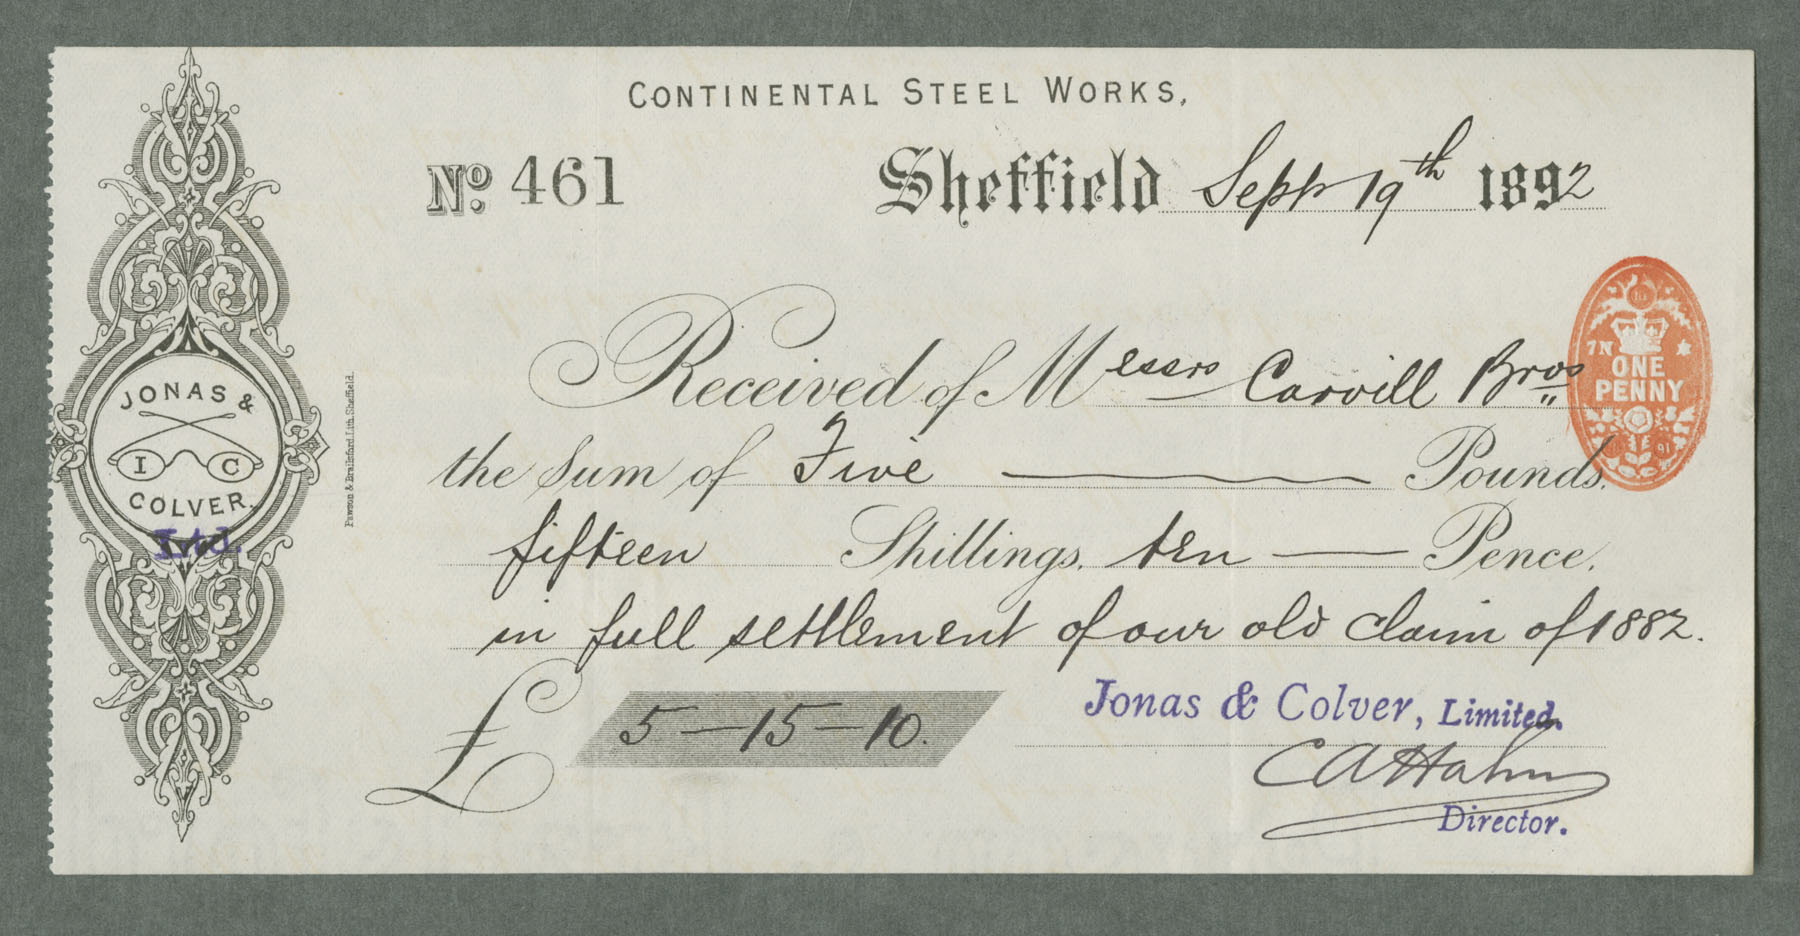 CONTINENTAL STEEL WORKS,
No. 461
Sheffield Sept 19th 1892
Received of Messrs Carvill Bros
the Sum of Five Pounds.
fifteen Shillings. ten Pence.
in full settlement of our old claim of 1882.
£ 5-15-10.
Jonas & Colver, Limited.
CAHahn
Director.
JONAS &
I C
COLVER.
Ltd.
Pawson & Brailsford Lith Sheffield.
ONE
PENNY